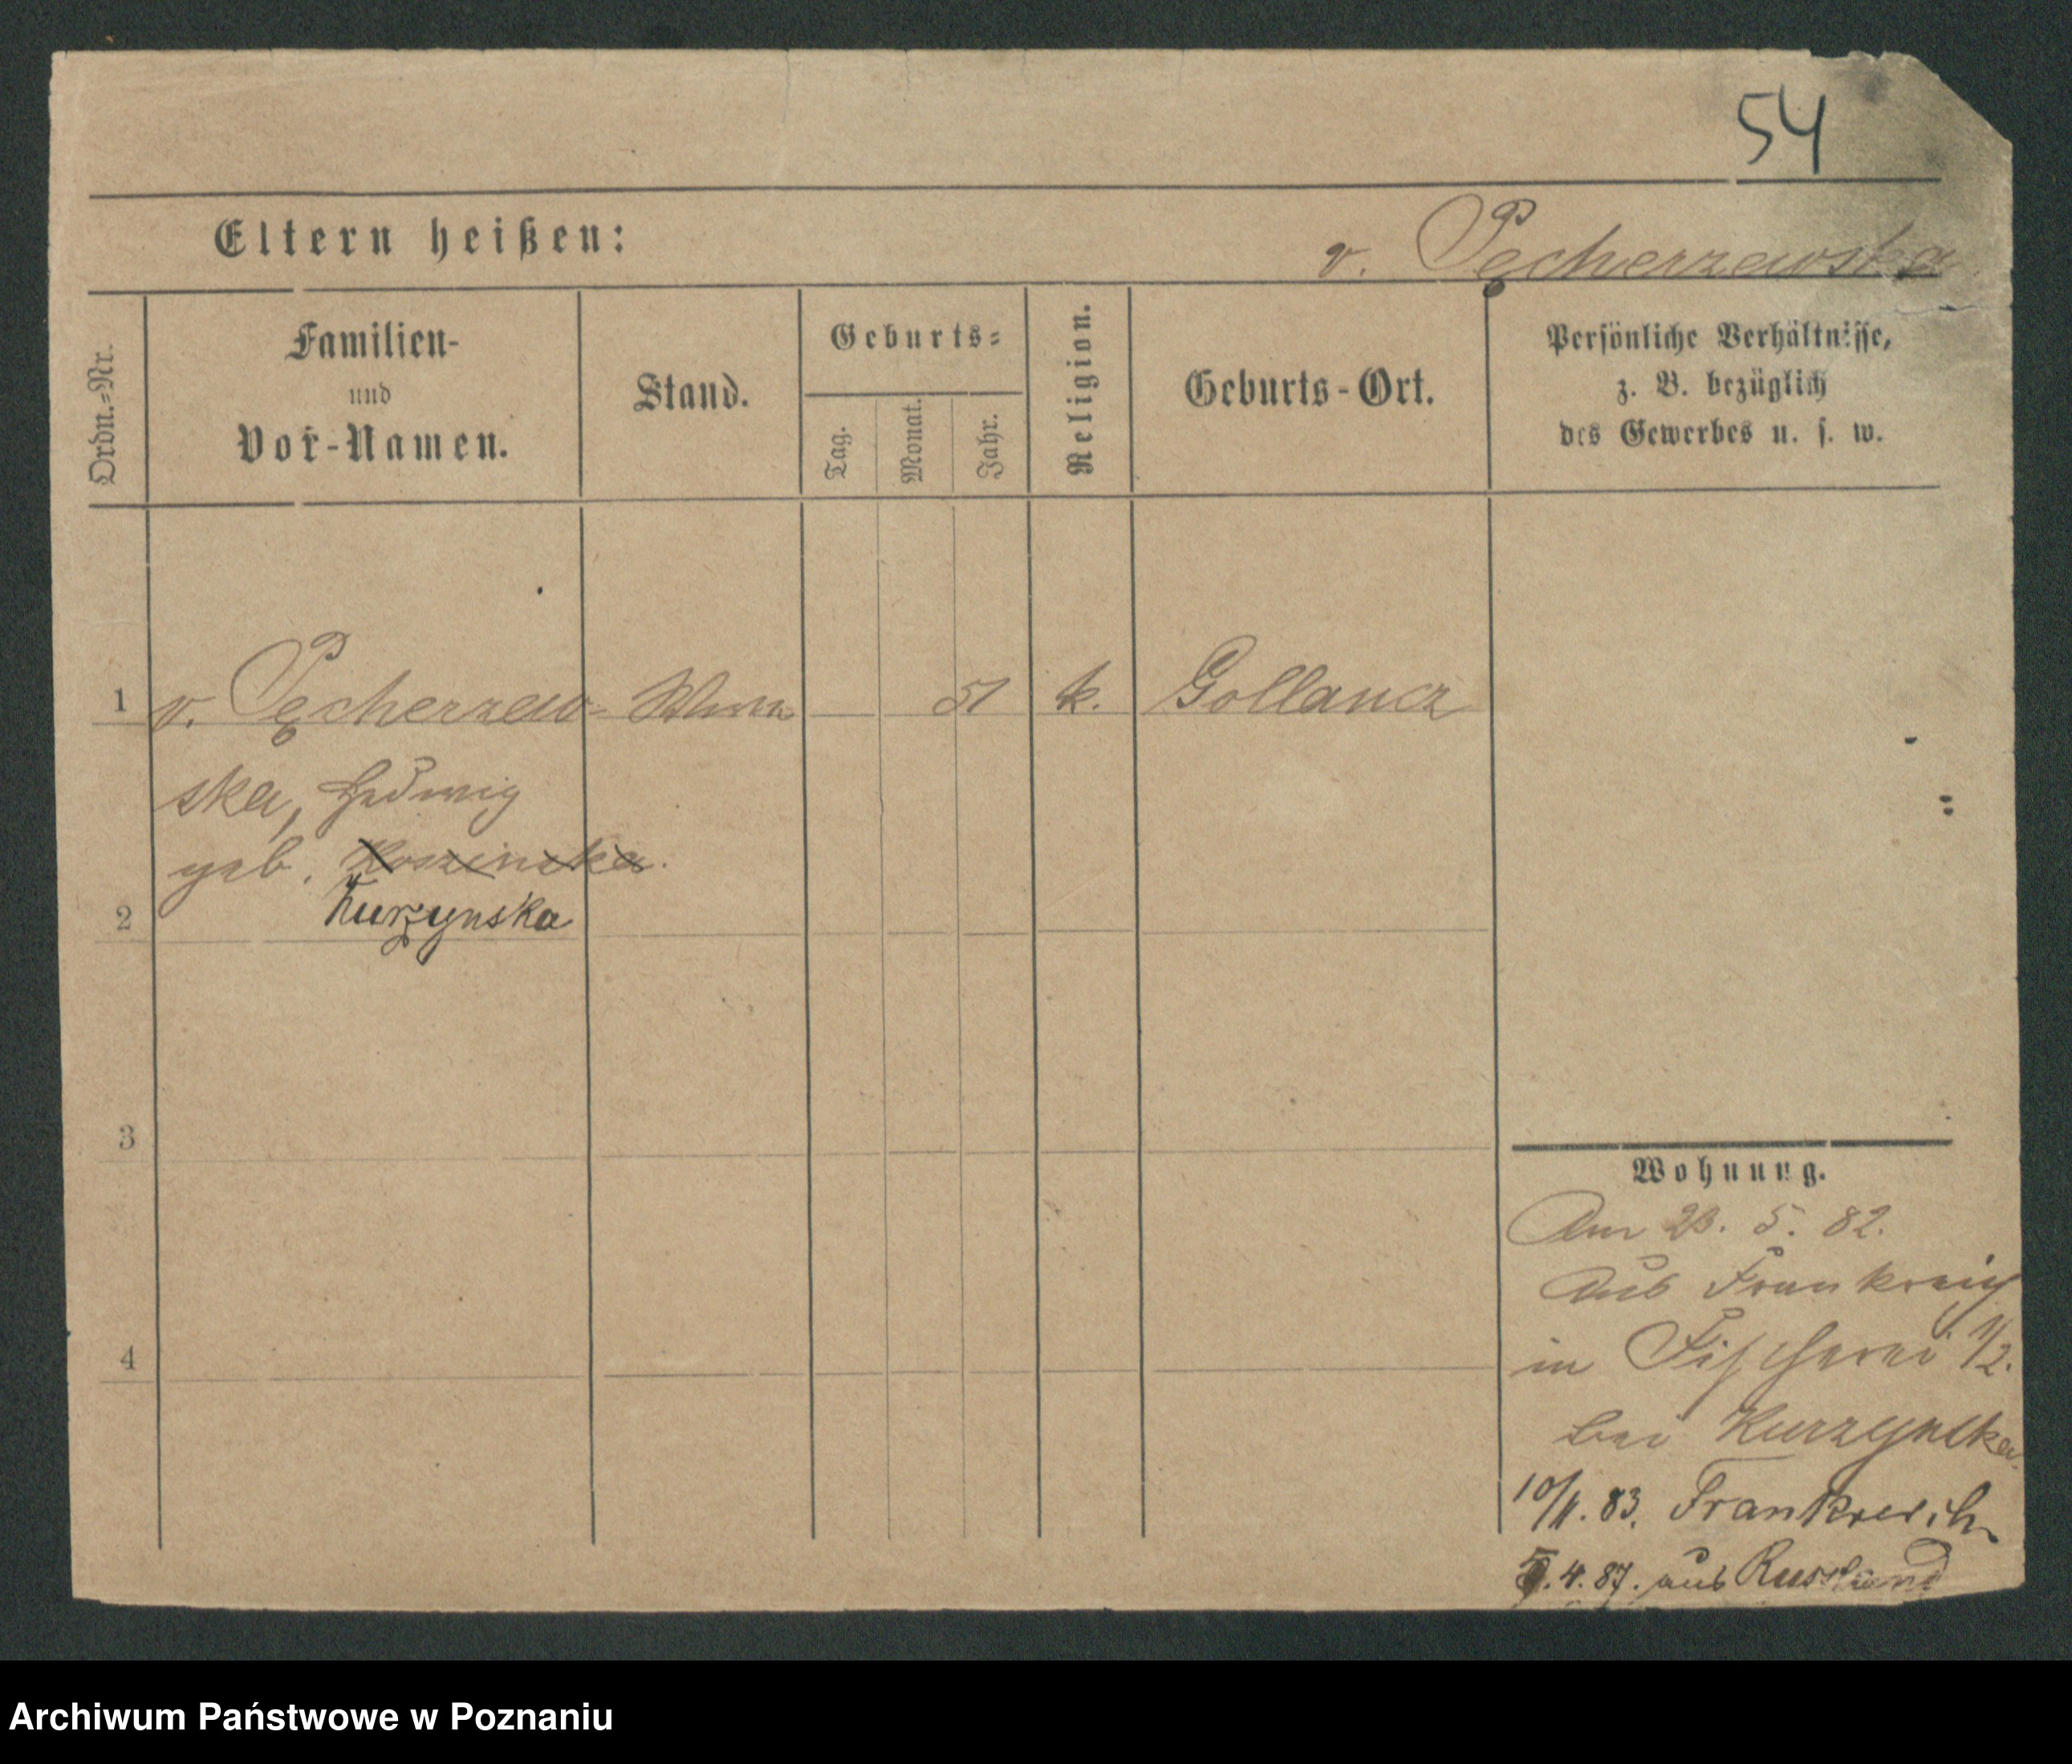 54
Eltern heißen:
v. Pęcherzewska
Ordn.=Nr.
Familien-
und
Vor-Namen.
Stand.
Geburts=
Tag.
Monat.
Jahr.
Religion.
Geburts-Ort.
Persönliche Verhältnisse,
z. B. bezüglich
des Gewerbes u. s. w.
1 v. Pęcherzew- 51 k. Gollancz
ska, Hedwig
geb.
Kurzynska
2
3
4
Wohnung.
Am 23. 5. 82.
Aus Frankreich
in Fischerei 1/2.
bei Kurzynska.
10/11. 83. Frankreich
4. 87. aus Russland
Archiwum Państwowe w Poznaniu